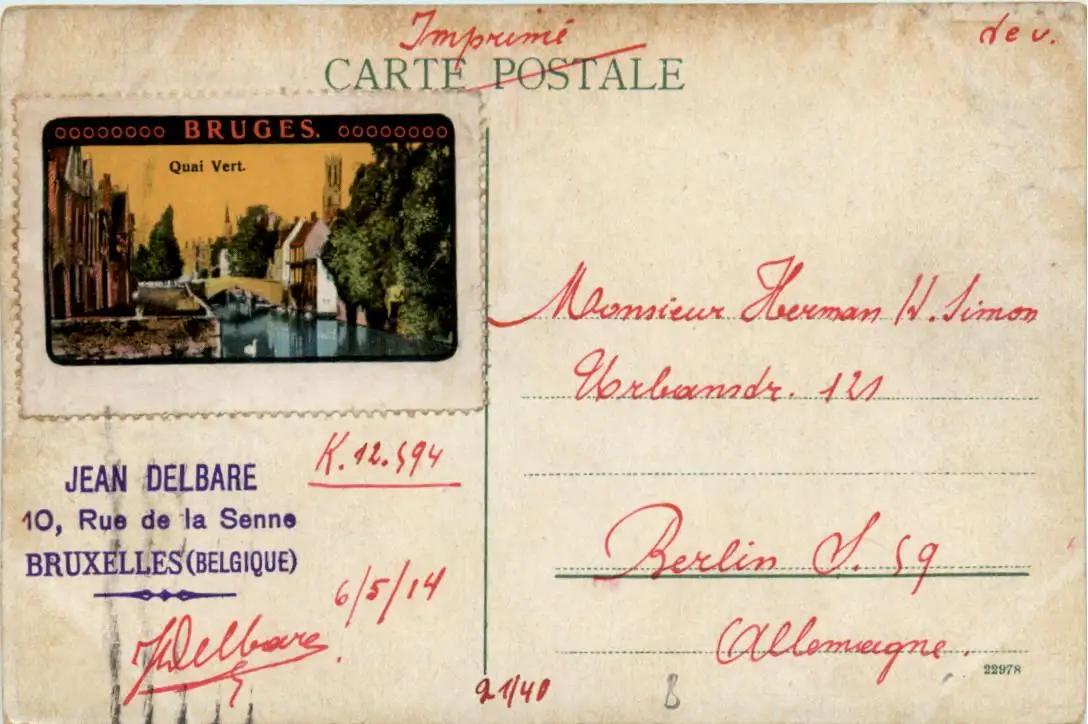 Imprimé
de v.
CARTE POSTALE
BRUGES.
Quai Vert.
Monsieur Herman H. Simon
Urbanstr. 121
Berlin S. 59
Allemagne.
K.12.594
JEAN DELBARE
10, Rue de la Senne
BRUXELLES (BELGIQUE)
6/5/14
JDelbare
21/40
B
22978